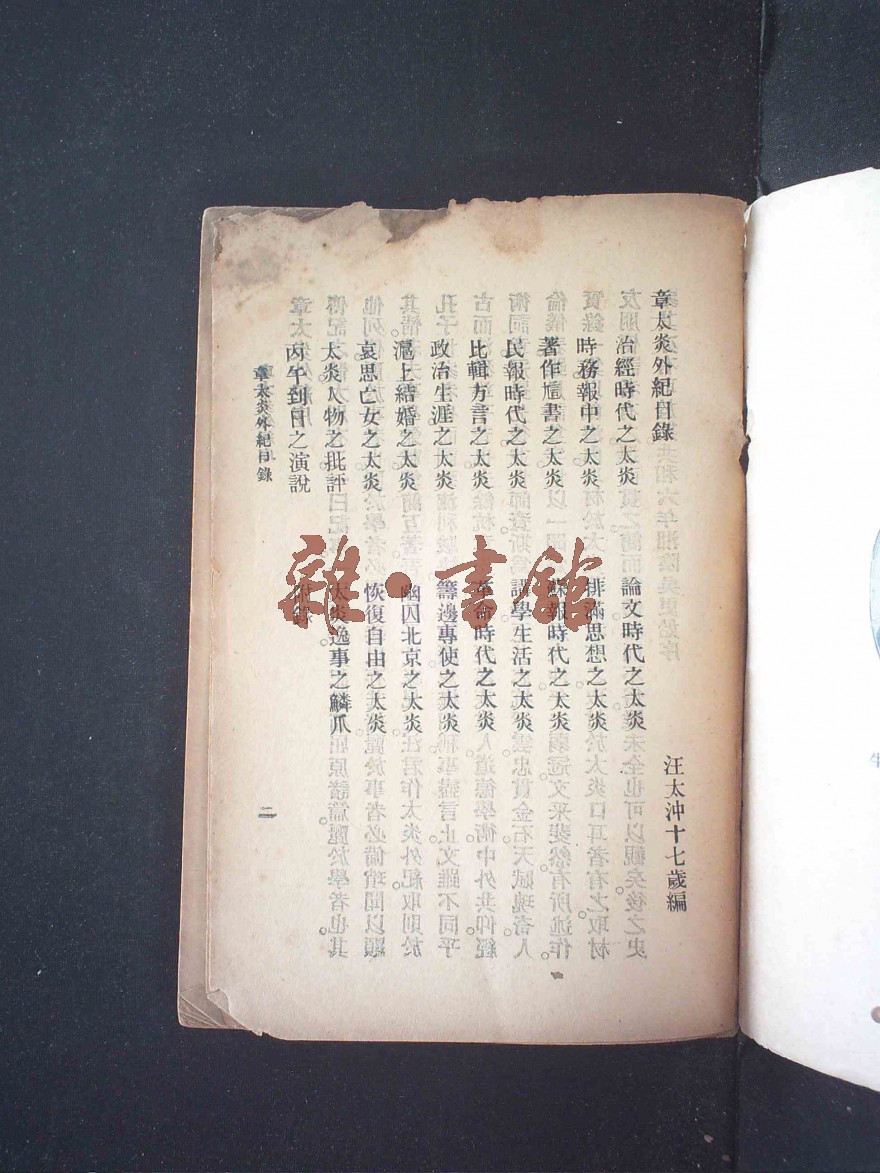 章太炎外紀目錄
汪太沖十七歲編
治經時代之太炎 論文時代之太炎
時務報中之太炎 排滿思想之太炎
著作訄書之太炎 蘇報時代之太炎
民報時代之太炎 講學生活之太炎
比輯方言之太炎 革命時代之太炎
政治生涯之太炎 籌邊專使之太炎
滬上結婚之太炎 幽囚北京之太炎
哀思亡女之太炎 恢復自由之太炎
太炎人物之批評 太炎逸事之鱗爪
丙午到日之演說 附錄
章太炎外紀目錄
二
雜·書館